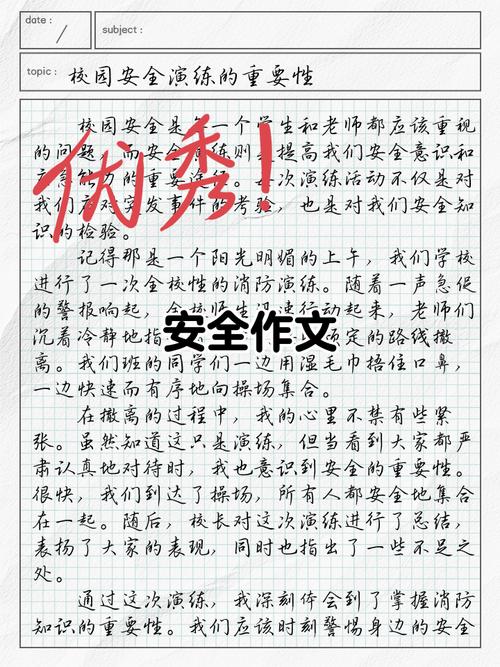 date:
subject:
topic: 校园安全演练的重要性
校园安全是 一个学生和老师都应该重视
的问题 而安全演练则是提高我们安全意识和
的重要 次演练活动不仅是对
我们应对突发事件的考验，也是对我们安全知
识的检验。
优秀！
记得那是一个阳光明媚的上午，我们学校
进行了一次全校性的消防演练。随着一声急促
的警报响起， 行动起来，老师们
沉着冷静地指 定的路线撤
安全作文
离。我们班的同学们一边用湿毛巾捂住口鼻，
一边快速而有序地向操场集合。
在撤离的过程中，我的心里不禁有些紧
张。虽然知道这只是演练，但当看到大家都严
肃认真地对待时，我也意识到安全的重要性。
很快，我们到达了操场，所有人都安全地集合
在一起。随后，校长对这次演练进行了总结，
表扬了大家的表现，同时也指出了一些不足之
处。
通过这次演练，我深刻体会到了掌握消防
知识的重要性。我们应该时刻警惕身边的安全